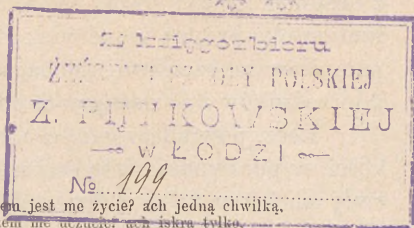 Z księgozbioru
ŻEŃSKIEJ SZKOŁY POLSKIEJ
Z. PIĘTKOWSKIEJ
W ŁODZI
№ 199
jest me życie? ach jedną chwilką,
me uczucie? ach iskrą tylko,